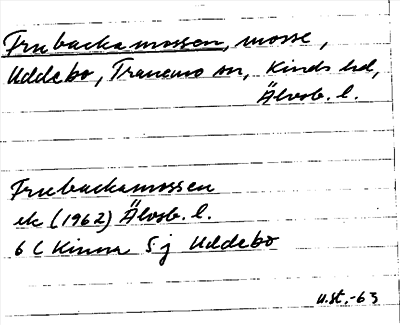 Frubackamossen, mosse,
Uddebo, Tranemo sn, Kinds hd,
Älvsb. l.
Frubackamossen
ek (1962) Älvsb. l.
6 C Kinna 5 j Uddebo
u.st.-63